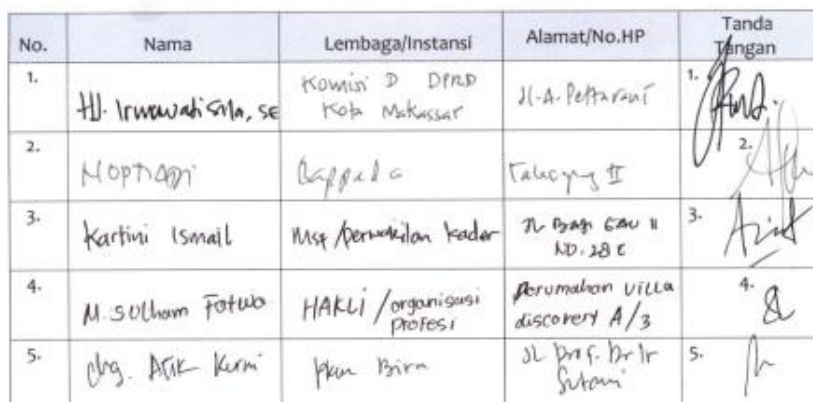 No. Nama Lembaga/Instansi Alamat/No.HP Tanda Tangan
1. Hj. Irmawati Sila, SE Komisi D DPRD Kota Makassar Jl. A. Pettarani 1.
2. Bappeda II 2.
3. Kartini Ismail Msy/perwakilan kader Jl 3.
NO. 28 E
4. M. Sulham HAKLI/organisasi profesi Perumahan Villa discovery A/3 4.
5. drg. Pkm Bira Jl Prof. Dr Ir Sutami 5.